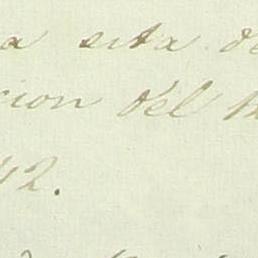 a sita de
cion del
42.